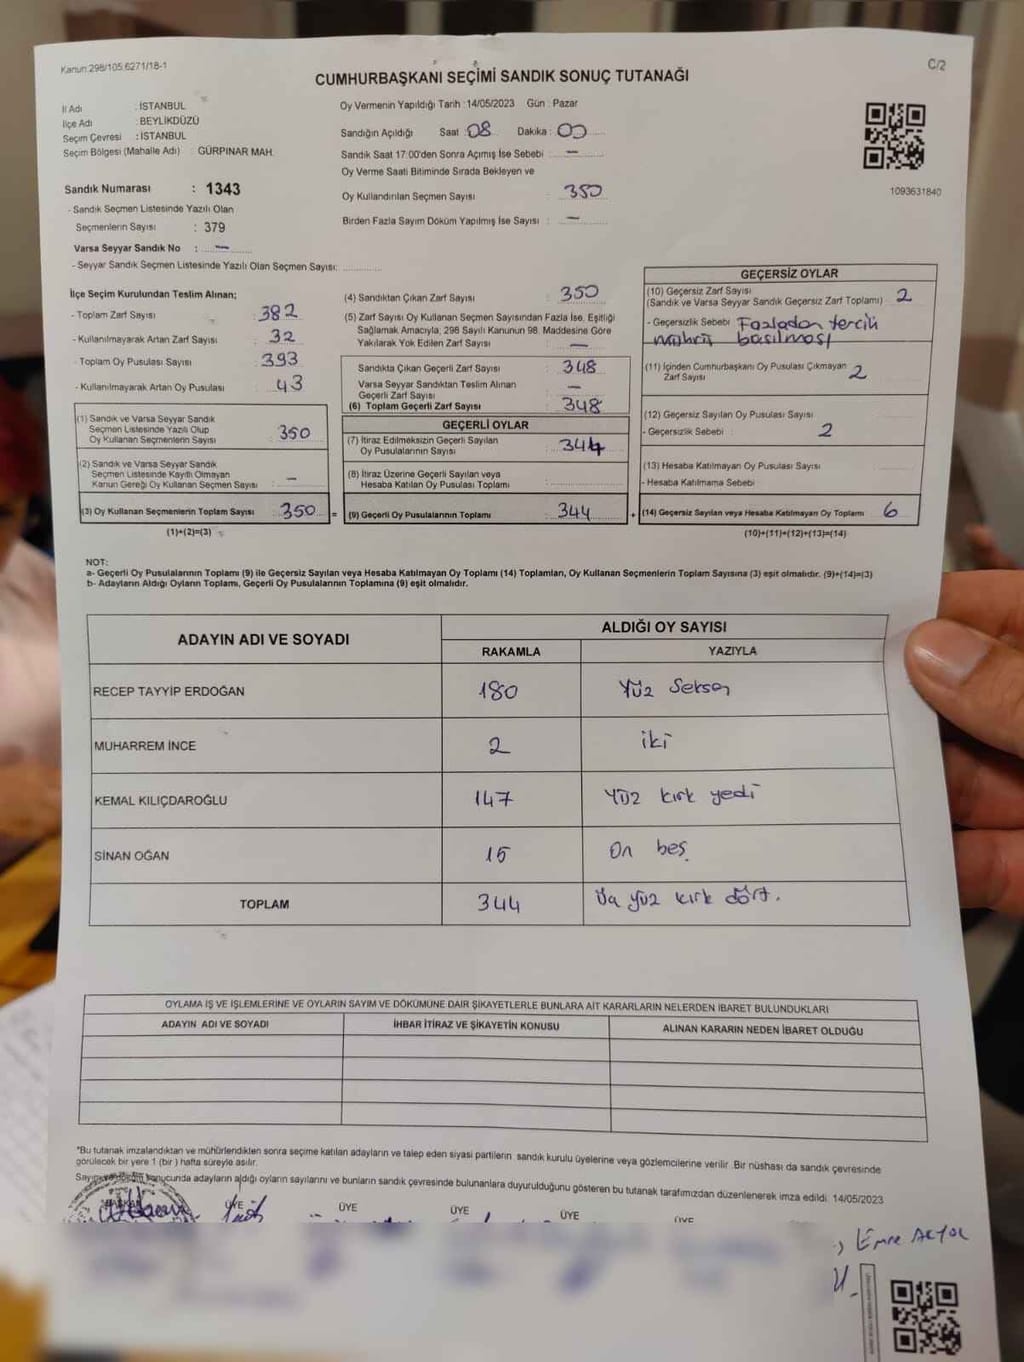 Kanun:298/105;6271/18-1
C/2
CUMHURBAŞKANI SEÇİMİ SANDIK SONUÇ TUTANAĞI
İl Adı : İSTANBUL
İlçe Adı : BEYLİKDÜZÜ
Seçim Çevresi : İSTANBUL
Seçim Bölgesi (Mahalle Adı) : GÜRPINAR MAH.
Sandık Numarası : 1343
- Sandık Seçmen Listesinde Yazılı Olan
Seçmenlerin Sayısı : 379
Varsa Seyyar Sandık No : —
- Seyyar Sandık Seçmen Listesinde Yazılı Olan Seçmen Sayısı:
Oy Vermenin Yapıldığı Tarih :14/05/2023 Gün : Pazar
Sandığın Açıldığı Saat : 08 Dakika : 00
Sandık Saat 17:00'den Sonra Açmış İse Sebebi : —
Oy Verme Saati Bitiminde Sırada Bekleyen ve
Oy Kullandırılan Seçmen Sayısı : 350
Birden Fazla Sayım Döküm Yapılmış İse Sayısı : —
1093631840
İlçe Seçim Kurulundan Teslim Alınan;
- Toplam Zarf Sayısı : 382
- Kullanılmayarak Artan Zarf Sayısı : 32
- Toplam Oy Pusulası Sayısı : 393
- Kullanılmayarak Artan Oy Pusulası : 43
(1) Sandık ve Varsa Seyyar Sandık
Seçmen Listesinde Yazılı Olup
Oy Kullanan Seçmenlerin Sayısı : 350
(2) Sandık ve Varsa Seyyar Sandık
Seçmen Listesinde Kaydı Olmayan
Kanun Gereği Oy Kullanan Seçmen Sayısı : —
(3) Oy Kullanan Seçmenlerin Toplam Sayısı : 350 =
(1)+(2)=(3)
(4) Sandıktan Çıkan Zarf Sayısı : 350
(5) Zarf Sayısı Oy Kullanan Seçmen Sayısından Fazla İse, Eşitliği
Sağlamak Amacıyla; 298 Sayılı Kanunun 98. Maddesine Göre
Yakılarak Yok Edilen Zarf Sayısı : —
Sandıkta Çıkan Geçerli Zarf Sayısı : 348
Varsa Seyyar Sandıktan Teslim Alınan
Geçerli Zarf Sayısı : —
(6) Toplam Geçerli Zarf Sayısı : 348
GEÇERLİ OYLAR
(7) İtiraz Edilmeksizin Geçerli Sayılan
Oy Pusulalarının Sayısı : 344
(8) İtiraz Üzerine Geçerli Sayılan veya
Hesaba Katılan Oy Pusulası Toplamı :
(9) Geçerli Oy Pusulalarının Toplamı : 344 +
GEÇERSİZ OYLAR
(10) Geçersiz Zarf Sayısı
(Sandık ve Varsa Seyyar Sandık Geçersiz Zarf Toplamı) : 2
- Geçersizlik Sebebi : Fazladan tercih
mührü basılması
(11) İçinden Cumhurbaşkanı Oy Pusulası Çıkmayan
Zarf Sayısı : 2
(12) Geçersiz Sayılan Oy Pusulası Sayısı :
- Geçersizlik Sebebi : 2
(13) Hesaba Katılmayan Oy Pusulası Sayısı :
- Hesaba Katılmama Sebebi
(14) Geçersiz Sayılan veya Hesaba Katılmayan Oy Toplamı : 6
(10)+(11)+(12)+(13)=(14)
NOT:
a- Geçerli Oy Pusulalarının Toplamı (9) ile Geçersiz Sayılan veya Hesaba Katılmayan Oy Toplamı (14) Toplamları, Oy Kullanan Seçmenlerin Toplam Sayısına (3) eşit olmalıdır. (9)+(14)=(3)
b- Adayların Aldığı Oyların Toplamı, Geçerli Oy Pusulalarının Toplamına (9) eşit olmalıdır.
ADAYIN ADI VE SOYADI
ALDIĞI OY SAYISI
RAKAMLA YAZIYLA
RECEP TAYYİP ERDOĞAN 180 Yüz Seksen
MUHARREM İNCE 2 iki
KEMAL KILIÇDAROĞLU 147 Yüz kırk yedi
SİNAN OĞAN 15 On beş
TOPLAM 344 Üç yüz kırk dört.
OYLAMA İŞ VE İŞLEMLERİNE VE OYLARIN SAYIM VE DÖKÜMÜNE DAİR ŞİKAYETLERLE BUNLARA AİT KARARLARIN NELERDEN İBARET BULUNDUKLARI
ADAYIN ADI VE SOYADI İHBAR İTİRAZ VE ŞİKAYETİN KONUSU ALINAN KARARIN NEDEN İBARET OLDUĞU
*Bu tutanak imzalandıktan ve mühürlendikten sonra seçime katılan adayların ve talep eden siyasi partilerin sandık kurulu üyelerine veya gözlemcilerine verilir. Bir nüshası da sandık çevresinde
görülecek bir yere 1 (bir ) hafta süreyle asılır.
Sayım ve döküm sonucunda adayların aldığı oyların sayılarını ve bunların sandık çevresinde bulunanlara duyurulduğunu gösteren bu tutanak tarafımızdan düzenlenerek imza edildi. 14/05/2023
BAŞKAN ÜYE ÜYE ÜYE ÜYE ÜYE
Emre